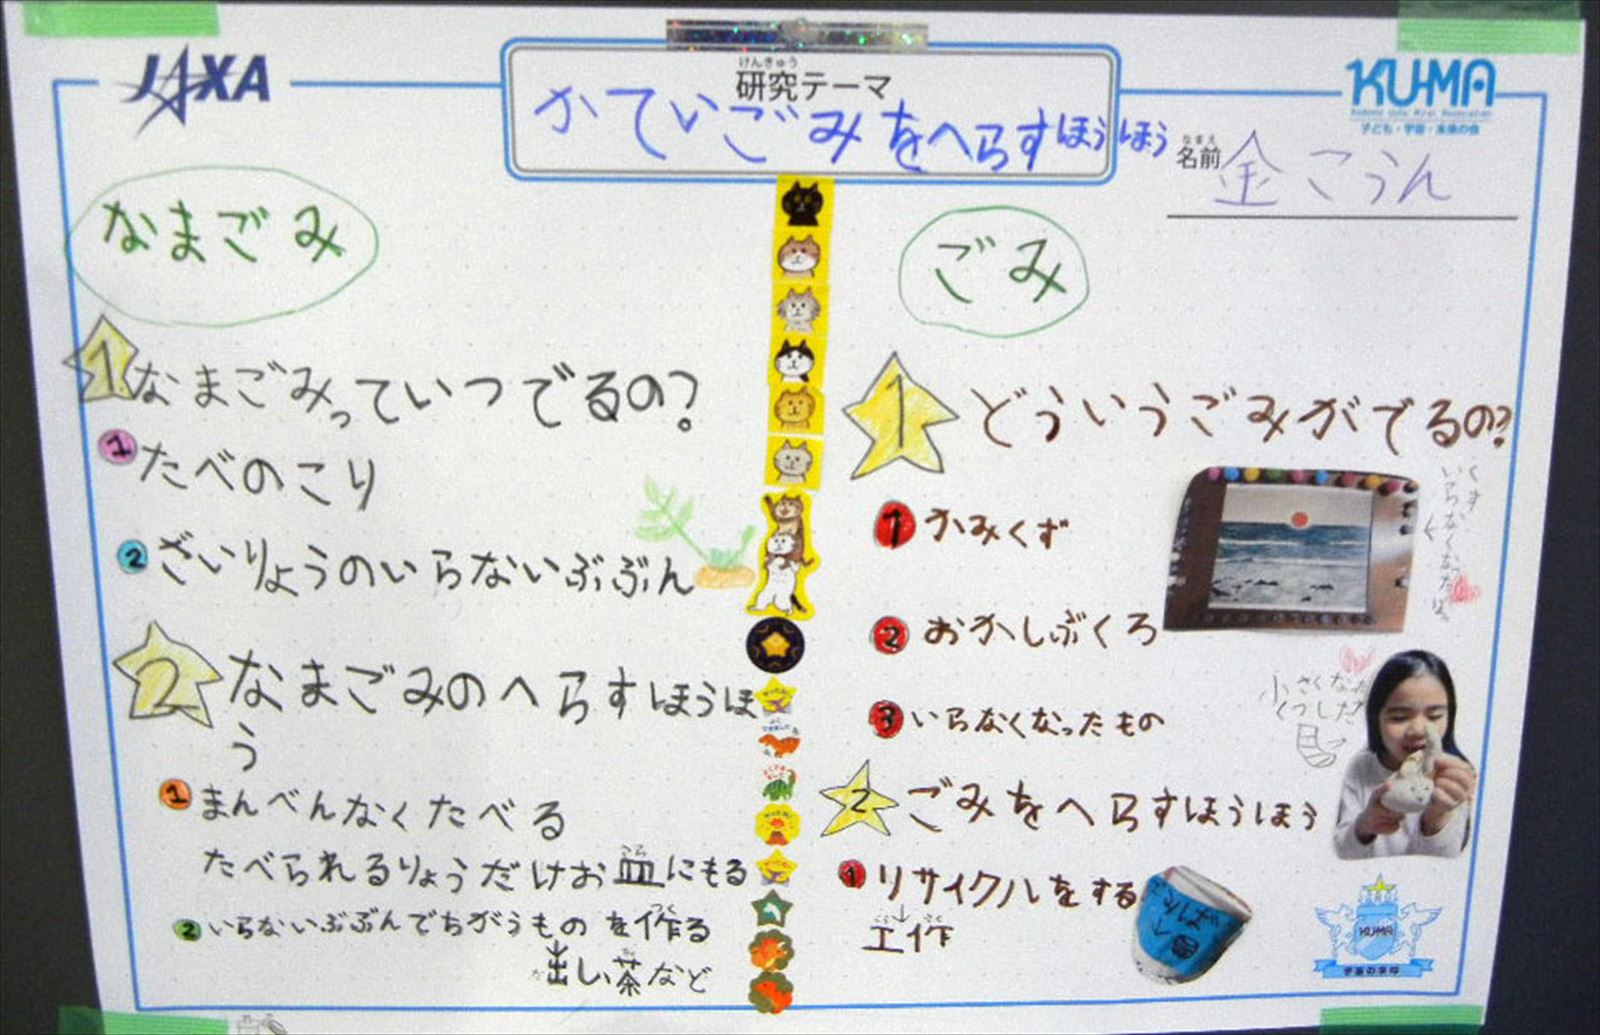 JAXA
けんきゅう
研究テーマ
かていごみをへらすほうほう
KU-MA
子ども・宇宙・未来の会
なまえ
名前 金こうん
なまごみ
1 なまごみっていつでるの?
1 たべのこり
2 ざいりょうのいらないぶぶん
2 なまごみのへらすほうほ
う
1 まんべんなくたべる
たべられるりょうだけお皿にもる
2 いらないぶぶんでちがうものを作る
出し、茶など
ごみ
1 どういうごみがでるの?
1 かみくず
2 おかしぶくろ
3 いらなくなったもの
小さくなった
くつした
2 ごみをへらすほうほう
1 リサイクルをする
↓
工作
KUMA
宇宙の学校